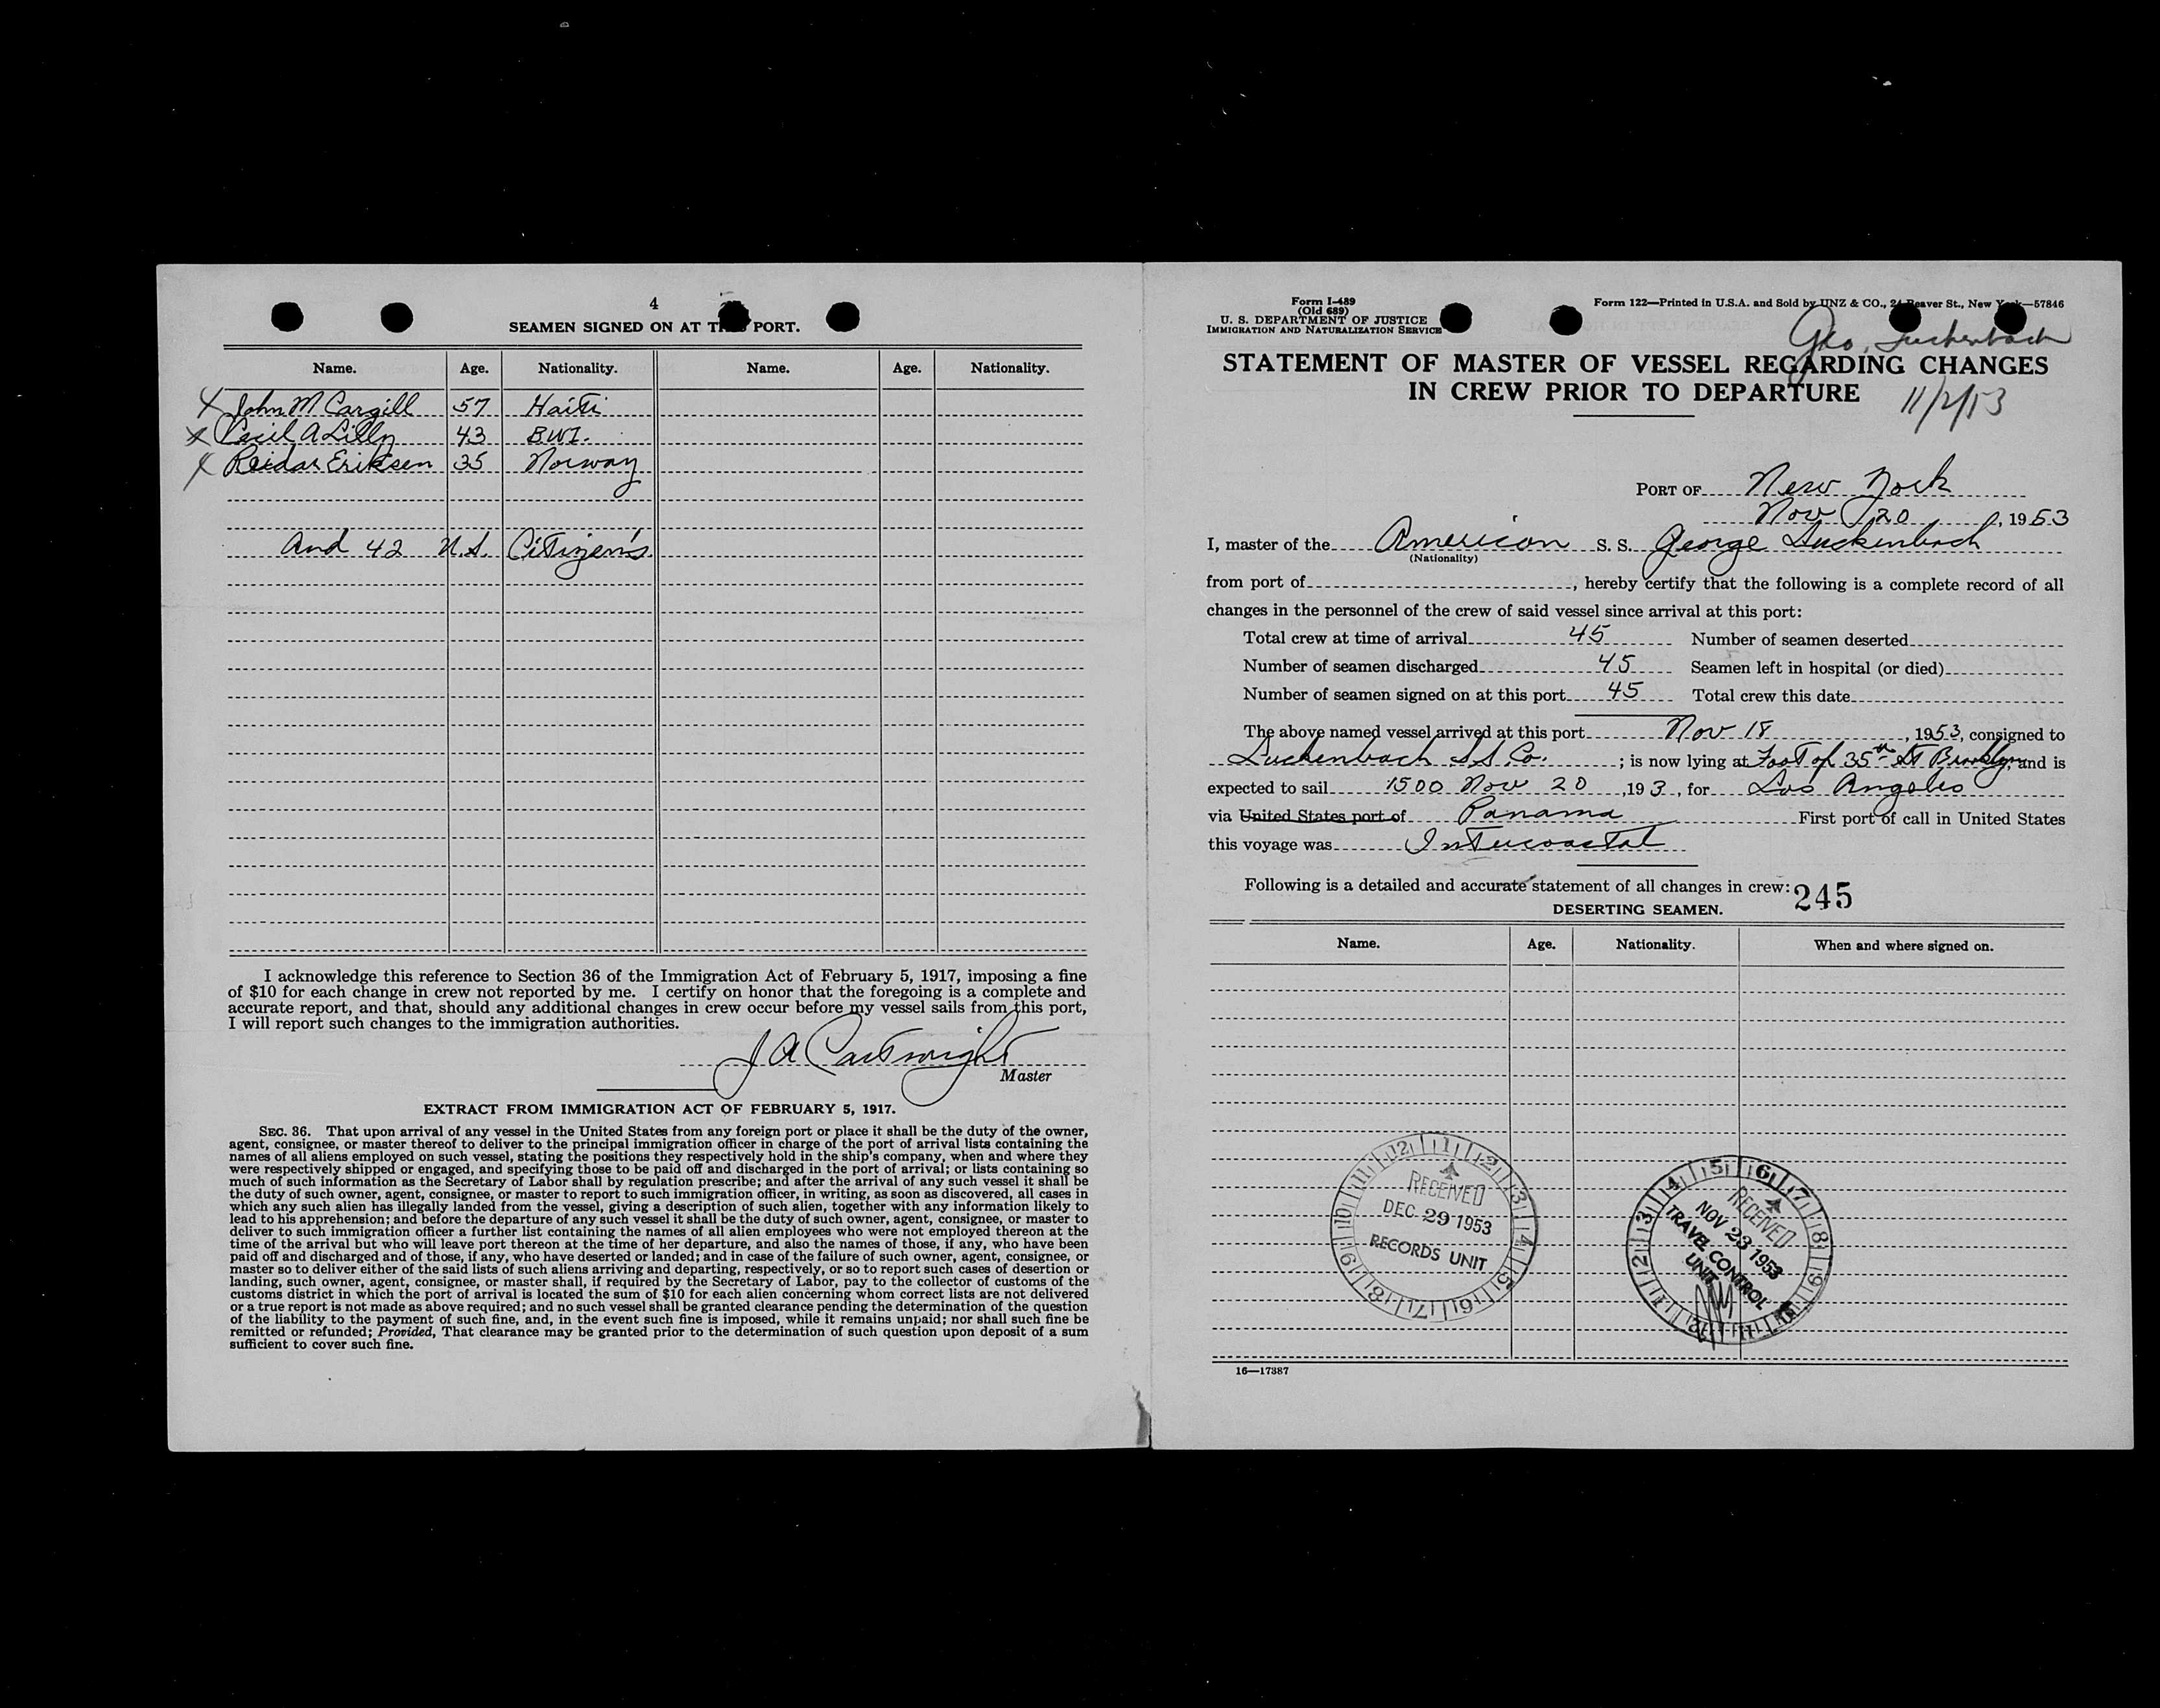 4
SEAMEN SIGNED ON AT THIS PORT.
Name. Age. Nationality. Name. Age. Nationality.
X John M Cargill 57 Haiti
X Cecil A Lilly 43 B.W.I.
X Reidar Eriksen 35 Norway
And 42 U.S. Citizen's
I acknowledge this reference to Section 36 of the Immigration Act of February 5, 1917, imposing a fine
of $10 for each change in crew not reported by me. I certify on honor that the foregoing is a complete and
accurate report, and that, should any additional changes in crew occur before my vessel sails from this port,
I will report such changes to the immigration authorities.
J A Cartwright
Master
EXTRACT FROM IMMIGRATION ACT OF FEBRUARY 5, 1917.
SEC. 36. That upon arrival of any vessel in the United States from any foreign port or place it shall be the duty of the owner,
agent, consignee, or master thereof to deliver to the principal immigration officer in charge of the port of arrival lists containing the
names of all aliens employed on such vessel, stating the positions they respectively hold in the ship's company, when and where they
were respectively shipped or engaged, and specifying those to be paid off and discharged in the port of arrival; or lists containing so
much of such information as the Secretary of Labor shall by regulation prescribe; and after the arrival of any such vessel it shall be
the duty of such owner, agent, consignee, or master to report to such immigration officer, in writing, as soon as discovered, all cases in
which any such alien has illegally landed from the vessel, giving a description of such alien, together with any information likely to
lead to his apprehension; and before the departure of any such vessel it shall be the duty of such owner, agent, consignee, or master to
deliver to such immigration officer a further list containing the names of all alien employees who were not employed thereon at the
time of the arrival but who will leave port thereon at the time of her departure, and also the names of those, if any, who have been
paid off and discharged and of those, if any, who have deserted or landed; and in case of the failure of such owner, agent, consignee, or
master so to deliver either of the said lists of such aliens arriving and departing, respectively, or so to report such cases of desertion or
landing, such owner, agent, consignee, or master shall, if required by the Secretary of Labor, pay to the collector of customs of the
customs district in which the port of arrival is located the sum of $10 for each alien concerning whom correct lists are not delivered
or a true report is not made as above required; and no such vessel shall be granted clearance pending the determination of the question
of the liability to the payment of such fine, and, in the event such fine is imposed, while it remains unpaid; nor shall such fine be
remitted or refunded; Provided, That clearance may be granted prior to the determination of such question upon deposit of a sum
sufficient to cover such fine.
Form I-489
(Old 689)
U. S. DEPARTMENT OF JUSTICE
IMMIGRATION AND NATURALIZATION SERVICE
Form 122—Printed in U.S.A. and Sold by UNZ & CO., 24 Beaver St., New York—57846
Geo. Luckenbach
STATEMENT OF MASTER OF VESSEL REGARDING CHANGES
IN CREW PRIOR TO DEPARTURE
PORT OF New York
Nov 20, 1953
I, master of the American S. S. George Luckenbach
(Nationality)
from port of , hereby certify that the following is a complete record of all
changes in the personnel of the crew of said vessel since arrival at this port:
Total crew at time of arrival 45 Number of seamen deserted
Number of seamen discharged 45 Seamen left in hospital (or died)
Number of seamen signed on at this port 45 Total crew this date
The above named vessel arrived at this port Nov 18, 1953, consigned to
Luckenbach S.S. Co. ; is now lying at Foot of 35th St Brooklyn, and is
expected to sail 1500 Nov 20, 193, for Los Angeles
via United States port of Panama First port of call in United States
this voyage was Intercoastal
Following is a detailed and accurate statement of all changes in crew: 245
DESERTING SEAMEN.
Name. Age. Nationality. When and where signed on.
RECEIVED
DEC 29 1953
RECORDS UNIT
RECEIVED
NOV 23 1953
TRAVEL CONTROL
UNIT
16—17387